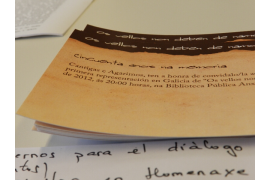 Os vellos non deben de namo
Os vellos non deben de namo
Cincuenta anos na memoria
Cantigas e Agarimos, ten a honra de convidalo/a
primeira representación en Galicia de "Os vellos no
de 2012, ás 20:00 horas, na Biblioteca Pública An
ernos para el diálogo
Homenaxe